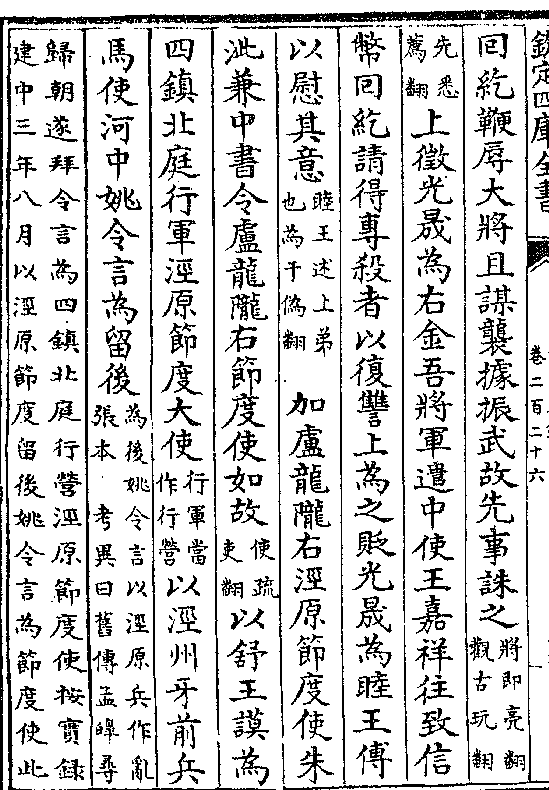 欽定四庫全書
卷二百二十六
回紇鞭辱大將且謀襲據振武故先事誅之將即亮翻觀古玩翻
先悉薦翻上徵光晟為右金吾將軍遣中使王嘉祥往致信
幣回紇請得專殺者以復讐上為之貶光晟為睦王傅
以慰其意睦王述上弟也為于偽翻 加盧龍隴右涇原節度使朱
泚兼中書令盧龍隴右節度使如故使疏吏翻以舒王謨為
四鎮北庭行軍涇原節度大使行軍當作行營以涇州牙前兵
馬使河中姚令言為留後為後姚令言以涇原兵作亂張本 考異曰舊傳孟皥尋
歸朝遂拜令言為四鎮北庭行營涇原節度使按實錄
建中三年八月以涇原節度留後姚令言為節度使此